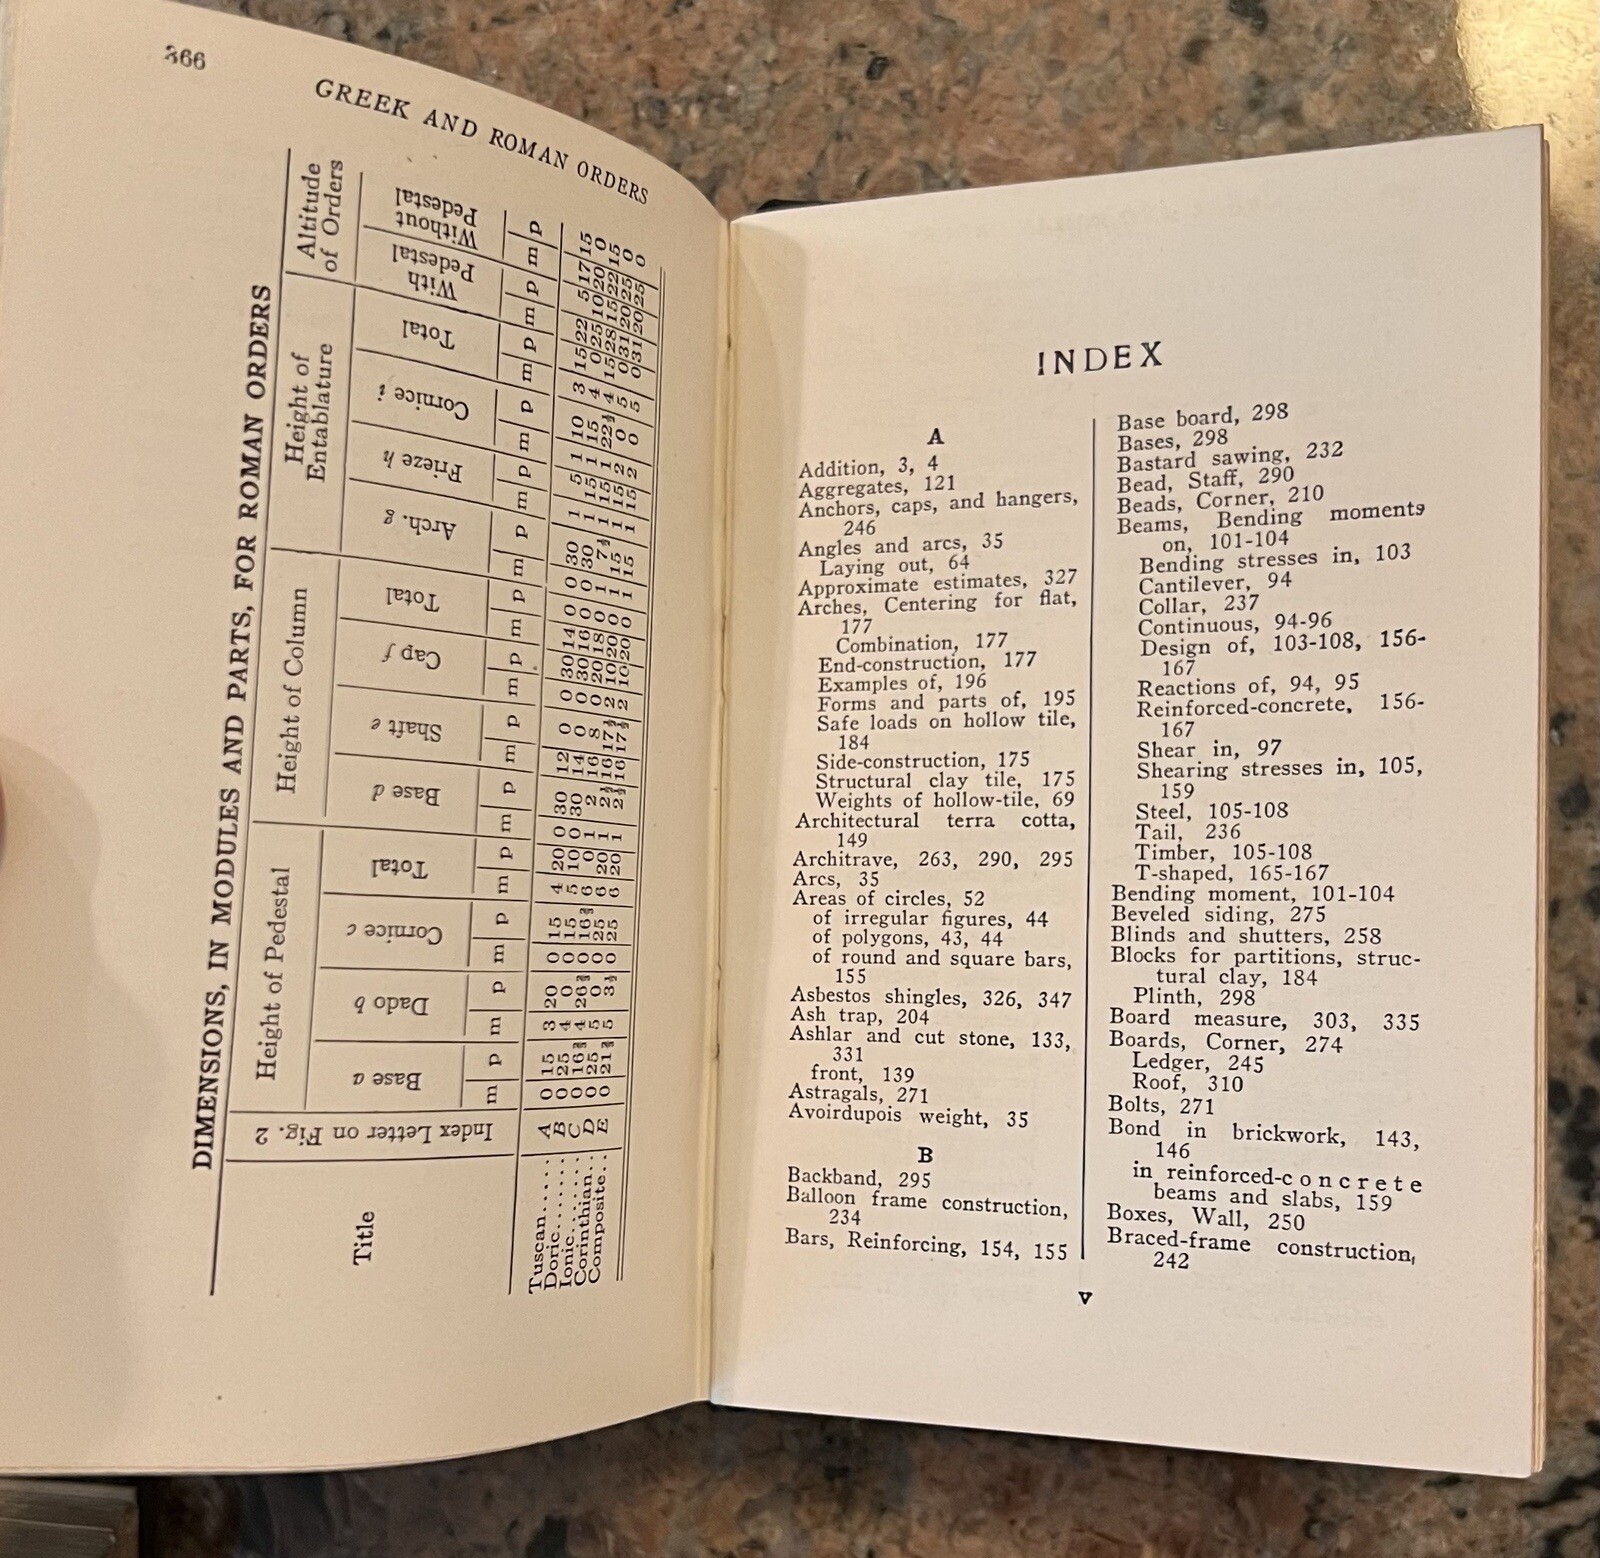 366
GREEK AND ROMAN ORDERS
DIMENSIONS, IN MODULES AND PARTS, FOR ROMAN ORDERS
Title
Index Letter on Fig. 2
Height of Pedestal
Height of Column
Height of Entablature
Altitude of Orders
Base a
Dado b
Cornice c
Total
Base d
Shaft e
Cap f
Total
Arch. g
Frieze h
Cornice i
Total
With Pedestal
Without Pedestal
m p m p m p m p m p m p m p m p m p m p m p m p m p m p
Tuscan..... A 0 15 3 20 0 15 4 20 0 30 12 0 0 30 14 0 0 30 1 5 1 10 3 15 22 5 17 15
Doric....... B 0 25 4 0 0 15 5 10 0 30 14 0 0 30 16 0 0 30 1 15 1 15 4 0 25 10 20 0
Ionic....... C 0 16⅔ 4 26⅔ 0 16⅔ 6 0 1 2 16 8 0 20 18 0 1 7½ 1 15 1 22½ 4 15 28 15 22 15
Corinthian.. D 0 25 5 0 0 25 6 20 1 2½ 16 17½ 2 10 20 0 1 15 1 15 2 0 5 0 31 20 25 0
Composite.. E 0 21⅔ 5 3⅓ 0 25 6 20 1 2½ 16 17½ 2 10 20 0 1 15 1 15 2 0 5 0 31 20 25 0
INDEX
A
Addition, 3, 4
Aggregates, 121
Anchors, caps, and hangers,
246
Angles and arcs, 35
Laying out, 64
Approximate estimates, 327
Arches, Centering for flat,
177
Combination, 177
End-construction, 177
Examples of, 196
Forms and parts of, 195
Safe loads on hollow tile,
184
Side-construction, 175
Structural clay tile, 175
Weights of hollow-tile, 69
Architectural terra cotta,
149
Architrave, 263, 290, 295
Arcs, 35
Areas of circles, 52
of irregular figures, 44
of polygons, 43, 44
of round and square bars,
155
Asbestos shingles, 326, 347
Ash trap, 204
Ashlar and cut stone, 133,
331
front, 139
Astragals, 271
Avoirdupois weight, 35
B
Backband, 295
Balloon frame construction,
234
Bars, Reinforcing, 154, 155
Base board, 298
Bases, 298
Bastard sawing, 232
Bead, Staff, 290
Beads, Corner, 210
Beams, Bending moments
on, 101-104
Bending stresses in, 103
Cantilever, 94
Collar, 237
Continuous, 94-96
Design of, 103-108, 156-
167
Reactions of, 94, 95
Reinforced-concrete, 156-
167
Shear in, 97
Shearing stresses in, 105,
159
Steel, 105-108
Tail, 236
Timber, 105-108
T-shaped, 165-167
Bending moment, 101-104
Beveled siding, 275
Blinds and shutters, 258
Blocks for partitions, struc-
tural clay, 184
Plinth, 298
Board measure, 303, 335
Boards, Corner, 274
Ledger, 245
Roof, 310
Bolts, 271
Bond in brickwork, 143,
146
in reinforced-concrete
beams and slabs, 159
Boxes, Wall, 250
Braced-frame construction,
242
v